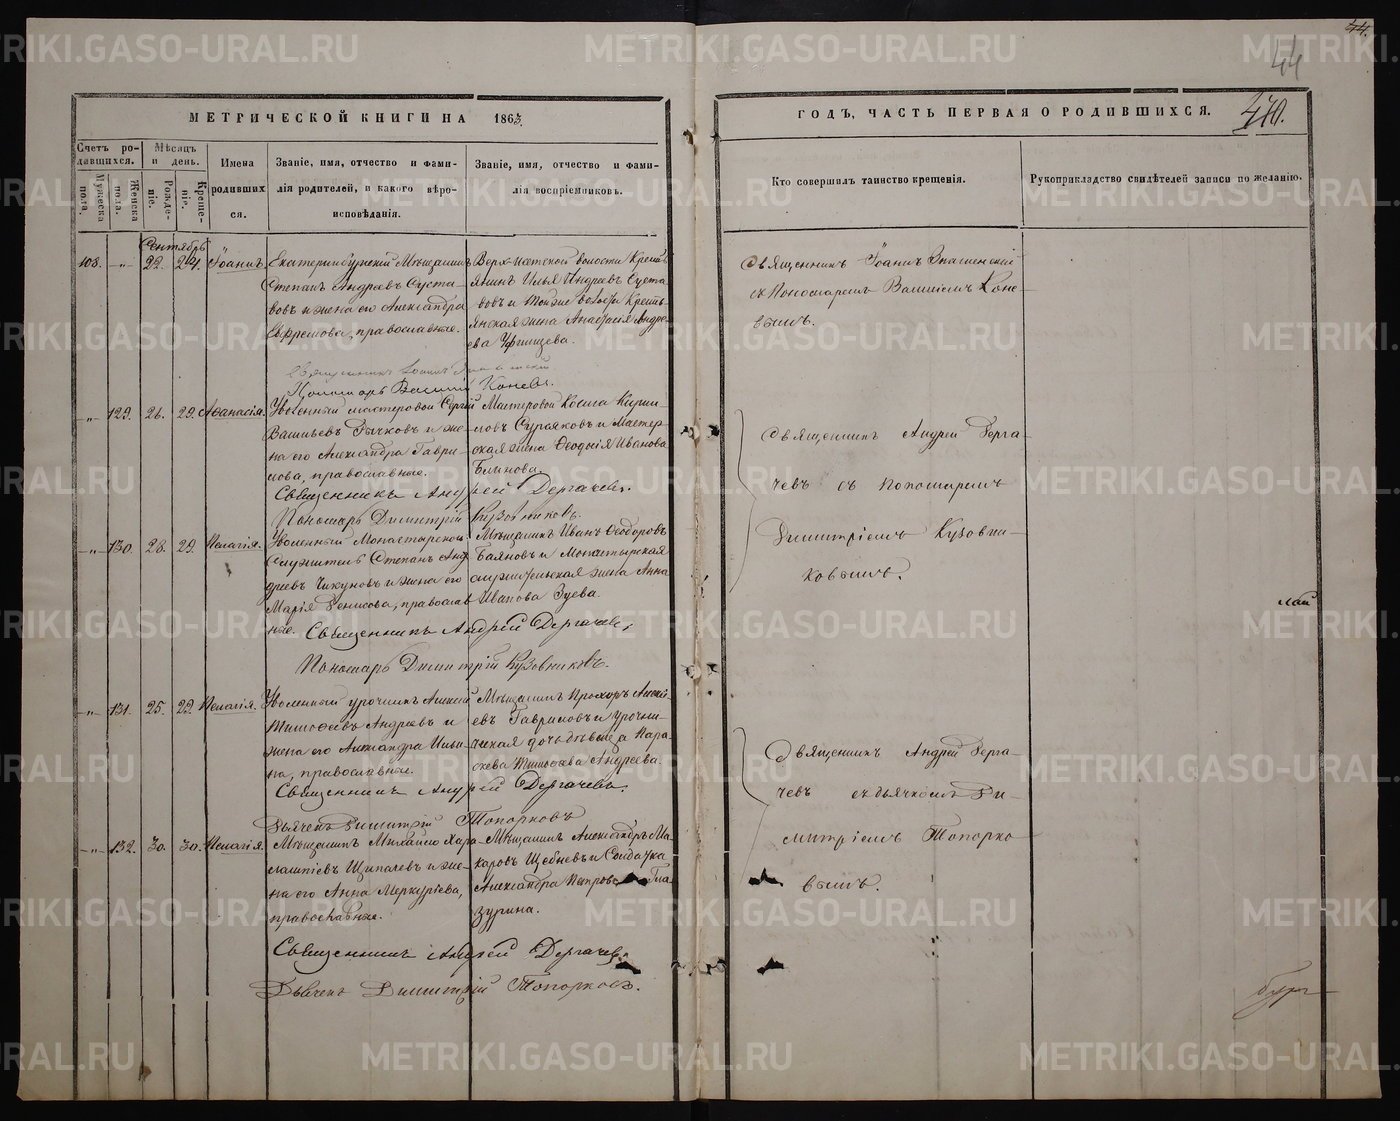 44.
44
440.
МЕТРИЧЕСКОЙ КНИГИ НА 1865
ГОДЪ, ЧАСТЬ ПЕРВАЯ О РОДИВШИХСЯ.
Счетъ родившихся.
Мужеска пола.
Женска пола.
Мѣсяцъ и день.
Рожденіе.
Крещеніе.
Имена родившихся.
Званіе, имя, отчество и фамилія родителей, и какого вѣроисповѣданія.
Званіе, имя, отчество и фамилія воспріемниковъ.
Кто совершилъ таинство крещенія.
Рукоприкладство свидѣтелей записи по желанію.
Сентябрь
108. -„- 22. 24. Іоаннъ.
Екатеринбургскій Мѣщанинъ
Степанъ Андреевъ Суста-
вовъ и жена его Александра
Ефремова, православные.
Верх-Исетской волости Кресть
янинъ Илья Андреевъ Суста
вовъ и тойже волости Кресть
янская жена Анастасія Андре
ева
Священникъ Іоаннъ Знаменскій
съ Пономаремъ Василіемъ Коне-
вымъ.
Священникъ Іоаннъ Знаменскій
Пономарь Василій Коневъ.
-„- 129. 26. 29. Аѳанасія.
Уволенный мастеровой Сергій
Васильевъ Рычковъ и же-
на его Александра Гаври-
лова, православные.
Мастеровой Косьма Кирил-
ловъ и Мастер-
ская жена Ѳеодосія Иванова
Блинова
Священникъ Андрей Дергачевъ.
Пономарь Димитрій Кузовниковъ.
Священникъ Андрей Дерга-
чевъ съ пономаремъ
Димитріемъ Кузовни-
ковымъ.
-„- 130. 28. 29. Пелагія.
Уволенный Монастырской
служитель Степанъ Анд
реевъ Чикуновъ и жена его
Марія Денисова, православ
ные.
Мѣщанинъ Иванъ Ѳеодоровъ
Баяновъ и Монастырская
служительская жена Анна
Иванова Зуева.
Священникъ Андрей Дергачевъ,
Пономарь Димитрій Кузовниковъ.
-„- 131. 25. 29. Пелагія.
Уволенный урочникъ Алексій
Тимоѳеевъ Андреевъ и
жена его Александра Ильи-
на, православные.
Мѣщанинъ Прохоръ Алексі
евъ Гавриловъ и урочни-
ческая дочь дѣвица Пара-
скева Тимоѳеева Андреева.
Священникъ Андрей Дергачевъ.
Дьячекъ Димитрій Топорковъ
Священникъ Андрей Дерга-
чевъ съ дьячкомъ Ди-
митріемъ Топорко-
вымъ.
-„- 132. 30. 30. Пелагія.
Мѣщанинъ Михаилъ Хара-
лампіевъ Щипачевъ и же-
на его Анна Меркуріева,
православные.
Мѣщанинъ Александръ Ма-
каровъ Щебневъ и Солдатка
Александра Петрова Гла-
зурина.
Священникъ Андрей Дергачевъ.
Дьячекъ Димитрій Топорковъ.
METRIKI.GASO-URAL.RU